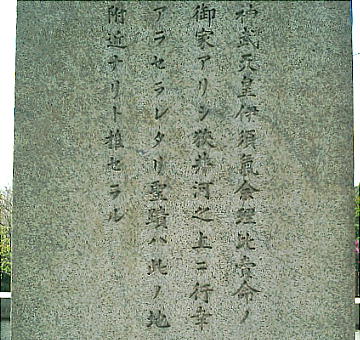 神武天皇伊須氣余理比賣命ノ
御家アリシ狹井河之上ニ行幸
アラセラレタリ聖蹟ハ此ノ地
附近ナリト推セラル